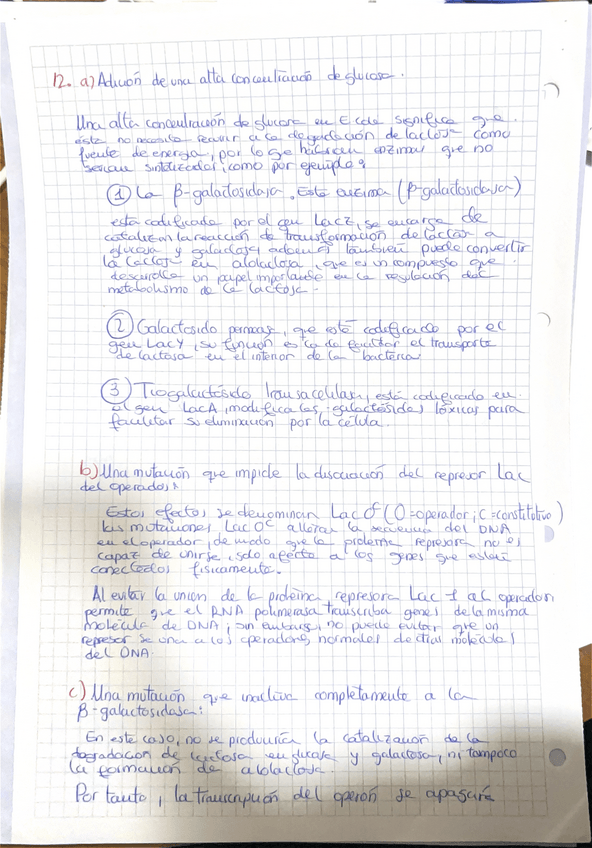 12. a) Adición de una alta concentración de glucosa.
Una alta concentración de glucosa en E coli significa que
éste no necesita recurrir a la degradación de lactosa como
fuente de energía, por lo que habrían enzimas que no
serían sintetizados, como por ejemplo:
① La β-galactosidasa. Esta enzima (β-galactosidasa)
está codificada por el gen LacZ, se encarga de
catalizar la reacción de transformación de lactosa a
glucosa y galactosa, además también puede convertir
la lactosa en alolactosa, que es un compuesto que
desarrolla un papel importante en la regulación del
metabolismo de la lactosa.
② Galactosido permeasa, que está codificado por el
gen LacY, su función es la de facilitar el transporte
de lactosa en el interior de la bacteria
③ Tiogalactósido transacetilasa, está codificado en
el gen LacA, modifica los galactósidos tóxicos para
facilitar su eliminación por la célula.
b) Una mutación que impide la disociación del represor Lac
del operador:
Estos efectos se denominan LacOᶜ (O=operador; C=constitutivo)
Las mutaciones LacOᶜ alteran la secuencia del DNA
en el operador, de modo que la proteína represora no es
capaz de unirse, solo afecta a los genes que están
conectados físicamente.
Al evitar la unión de la proteína represora Lac I al operador
permite que el RNA polimerasa transcriba genes de la misma
molécula de DNA; sin embargo, no puede evitar que un
represor se una a los operadores normales de otras moléculas
del DNA.
c) Una mutación que inactiva completamente a la
β-galactosidasa:
En este caso, no se produciría la catalización de la
degradación de lactosa en glucosa y galactosa, ni tampoco
la formación de alolactosa.
Por tanto, la transcripción del operón se apagaría